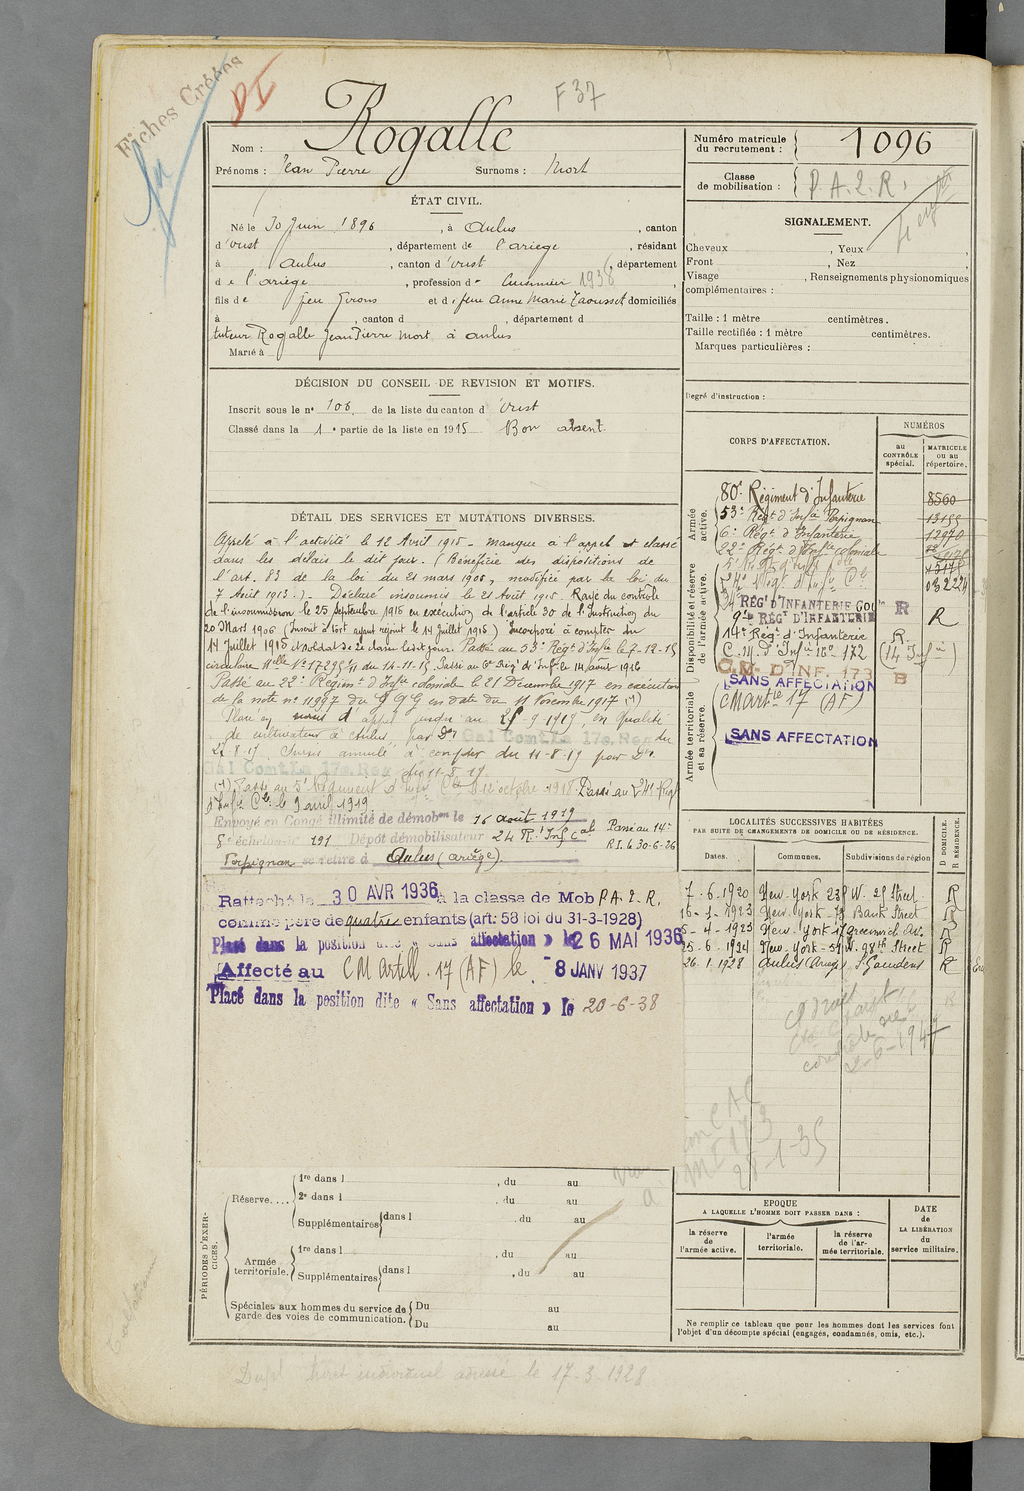 Fiches Créées
DI
F 37
Nom : Rogalle
Prénoms : Jean Pierre Surnoms : Mort
Numéro matricule du recrutement : 1096
Classe de mobilisation : P.A.2.R.
ÉTAT CIVIL.
Né le 30 Juin 1896, à Aulus, canton
d'Oust, département de l'ariege, résidant
à Aulus, canton d'Oust, département
de l'ariége, profession de Cuisinier 1938,
fils de feu Girons et de feue Anne Marie Zaousset domiciliés
à , canton d , département d
tuteur Rogalle Jean Pierre Mort à aulus
Marié à
SIGNALEMENT.
Cheveux , Yeux ,
Front , Nez ,
Visage , Renseignements physionomiques
complémentaires :
Taille : 1 mètre centimètres.
Taille rectifiée : 1 mètre centimètres.
Marques particulières :
Degré d'instruction :
DÉCISION DU CONSEIL DE REVISION ET MOTIFS.
Inscrit sous le n° 106 de la liste du canton d'Oust
Classé dans la 1e partie de la liste en 1915 Bon absent.
DÉTAIL DES SERVICES ET MUTATIONS DIVERSES.
Appelé à l'activité le 12 Avril 1915 - manque à l'appel et classé
dans les délais le dit jour. (Bénéficie des dispositions de
l'art. 83 de la loi du 21 mars 1905, modifiée par la loi du
7 Août 1913.) - Déclaré insoumis le 21 Août 1915. Rayé du contrôle
de l'insoumission le 25 Septembre 1915 en exécution de l'article 30 de l'Instruction du
20 Mars 1906 (Inscrit à tort ayant rejoint le 14 Juillet 1915) Incorporé à compter du
14 Juillet 1915 et soldat de 2e classe le dit jour. Passé au 53e Régt d'Infie le 7-12-15
circulaire Mlle N° 17295 du 14-11-15. Passé au 6e Régt d'Inf. le 14 août 1916
Passé au 22e Régiment d'Infie coloniale le 21 Décembre 1917 en exécution
de la note n° 11997 du G Q G en date du 11 Novembre 1917 (1)
Placé en sursis d'appel jusqu'au 25-9-1919, en qualité
de cultivateur à Aulus, par Don Gal Comt. La 17e. Reg du
22-8-17 Sursis annulé à compter du 11-8-19 par Don
Gal Comt. La 17e. Reg du 11-8-19
(1) Passé au 5e Régiment d'Infie Cle le 12 octobre 1918. Passé au 24e Régt
d'Infie Cle le 9 avril 1919
Envoyé en Congé illimité de démobon le 16 août 1919
échelon n° 191 Dépôt démobilisateur 24 R.t Inf cale Passé au 14e
Perpignan se retire à Aulus (ariège). R.I. le 30-6-26
Rattaché le 30 AVR 1936 à la classe de Mob P.A.2.R.
comme père de quatre enfants (art: 58 loi du 31-3-1928)
Placé dans la position dite « Sans affectation » le 26 MAI 1936
Affecté au C M Artill. 17 (AF) le -8 JANV 1937
Placé dans la position dite « Sans affectation » le 20-6-38
CORPS D'AFFECTATION.
NUMÉROS
au CONTRÔLE spécial.
MATRICULE ou au répertoire.
Armée active.
80e Régiment d'Infanterie 8560
53e Régt d'Infie Perpignan 13155
6e Régt d'Infanterie 12970
22e Régt d'Infie coloniale
Disponibilité et réserve de l'armée active.
24e Régt d'Infie Cle
RÉGt D'INFANTERIE COLle R
9e RÉGt D'INFANTERIE R
14e Régt d'Infanterie R
C.M. d'Infie n° 172 (14 Infie)
C.M. D'INF. 173 B
Armée territoriale et sa réserve.
SANS AFFECTATION
CM Artie 17 (AF)
SANS AFFECTATION
LOCALITÉS SUCCESSIVES HABITÉES
PAR SUITE DE CHANGEMENTS DE DOMICILE OU DE RÉSIDENCE.
Dates. Communes. Subdivisions de région D DOMICILE. R RÉSIDENCE.
7-6-1920 New-York 239 W. 25 Street R
16-1-1923 New-York 78 Bank Street R
5-4-1923 New-York 17 greenwich Av. R
25-6-1924 New-York - 51 W. 98th Street R
26.1.1928 Aulus (Ariège) St Gaudens R
2-6-1947
CAC
MI 173
28-1-35
PÉRIODES D'EXERCICES.
Réserve.... 1re dans l , du au
2e dans l , du au
Supplémentaires dans l , du au
Armée territoriale. 1re dans l , du au
Supplémentaires dans l , du au
Spéciales aux hommes du service de garde des voies de communication. Du au
Du au
EPOQUE
A LAQUELLE L'HOMME DOIT PASSER DANS :
la réserve de l'armée active.
l'armée territoriale.
la réserve de l'armée territoriale.
DATE de LA LIBÉRATION du service militaire.
Ne remplir ce tableau que pour les hommes dont les services font
l'objet d'un décompte spécial (engagés, condamnés, omis, etc.).
Dupt livret individuel adressé le 17-3-1928